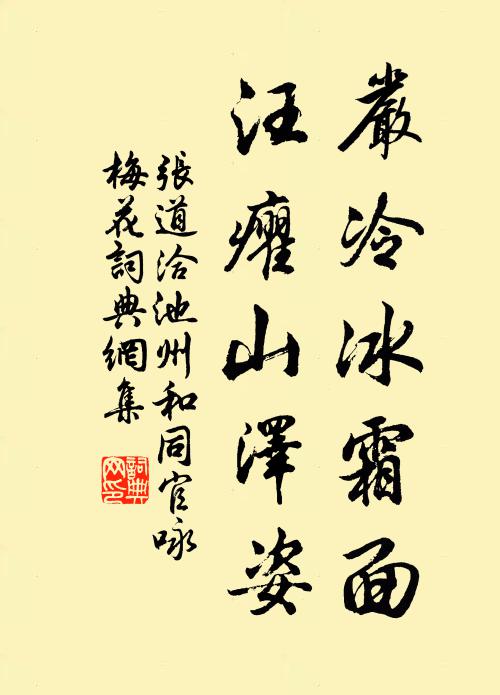 嚴冷冰霜面
汪癯山澤姿
張道洽池州和同官咏
梅花詞典網集
詞典
网印